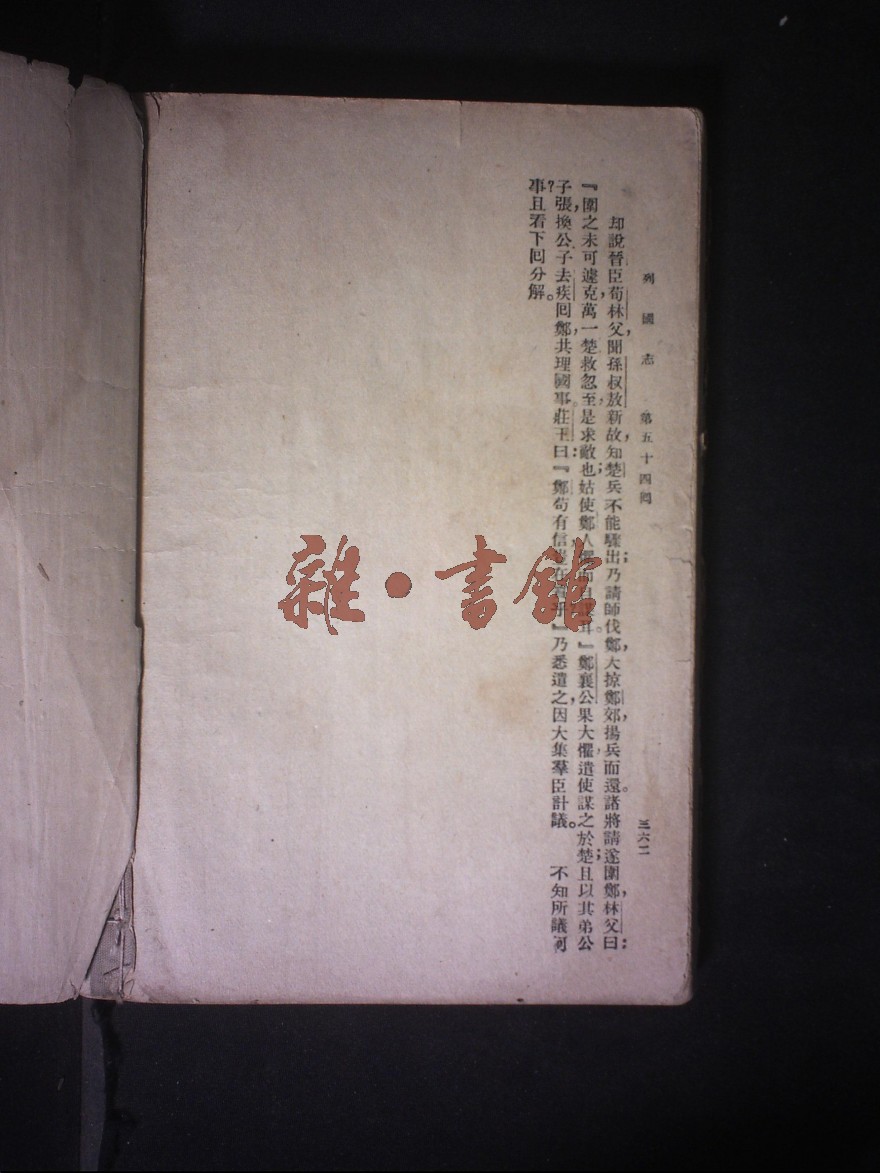 列國志 第五十四囘 三六二
却說晉臣荀林父，聞孫叔敖新故，知楚兵不能驟出；乃請師伐鄭，大掠鄭郊，揚兵而還。諸將請遂圍鄭，林父曰：
『圍之未可遽克，萬一楚救忽至，是求敵也；姑使鄭人懼而自謀耳。』鄭襄公果大懼，遣使謀之於楚；且以其弟公
子張，換公子去疾囘鄭，共理國事。莊王曰：『鄭苟有信，豈在質乎』乃悉遣之，因大集羣臣計議。 不知所議何
事？且看下囘分解。
雜·書館